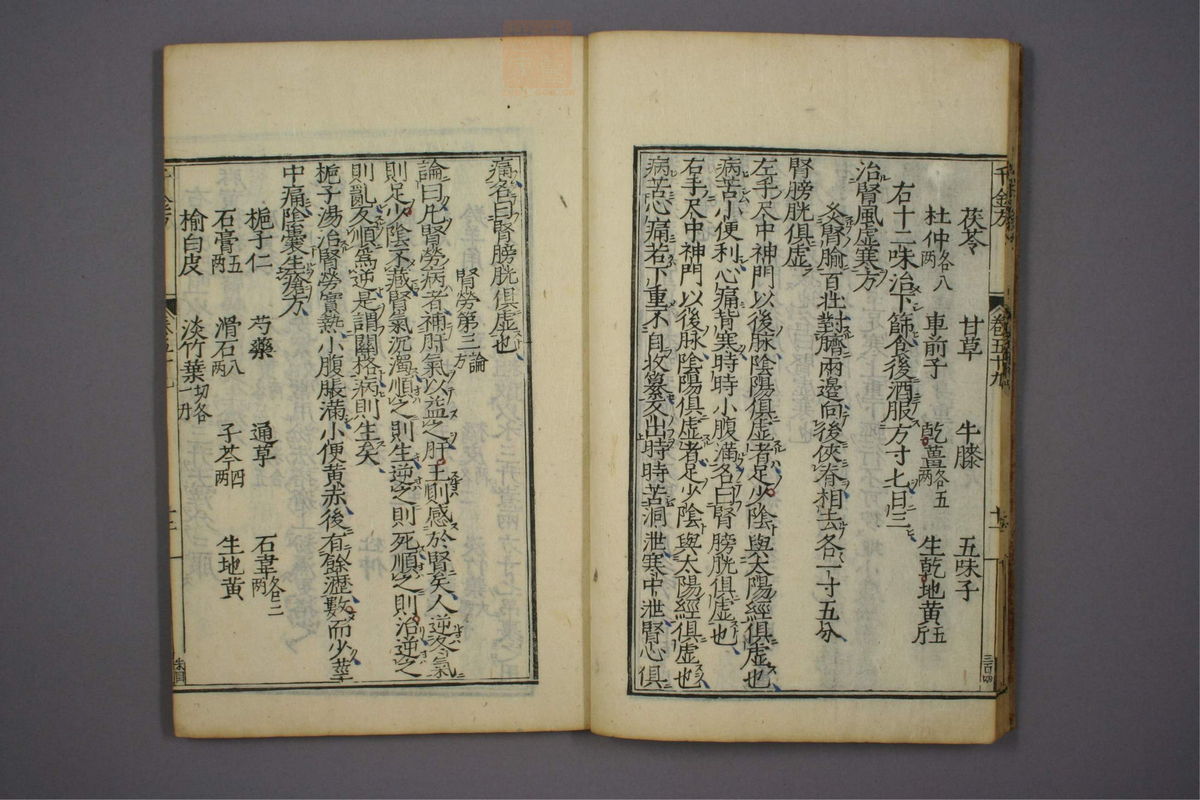 千金方 卷五十九
茯苓 甘草 牛膝 五味子
杜仲各八兩 車前子 乾薑各五兩 生乾地黃五斤
右十二味治下篩食後酒服方寸匕日三
治腎風虛寒方
灸腎腧百壯對臍兩邊向後俠脊相去各一寸五分
腎膀胱俱虛
左手尺中神門以後脉陰陽俱虛者足少陰與太陽經俱虛也
病苦小便利心痛背寒時時小腹滿名曰腎膀胱俱虛也
右手尺中神門以後脉陰陽俱虛者足少陰與太陽經俱虛也
病苦心痛若下重不自收篡反出時時苦洞泄寒中泄腎心俱
痛名曰腎膀胱俱虛也
腎勞第三論方
論曰凡腎勞病者補肝氣以益之肝王則感於腎矣人逆冬氣
則足少陰不藏腎氣沉濁順之則生逆之則死順之則治逆之
則亂反順爲逆是謂關格病則生矣
梔子湯治腎勞實熱小腹脹滿小便黃赤後有餘瀝數而少莖
中痛陰囊生瘡方
梔子仁 芍藥 通草 石韋各三兩
石膏五兩 滑石八兩 子芩四兩 生地黃
榆白皮 淡竹葉切各一升